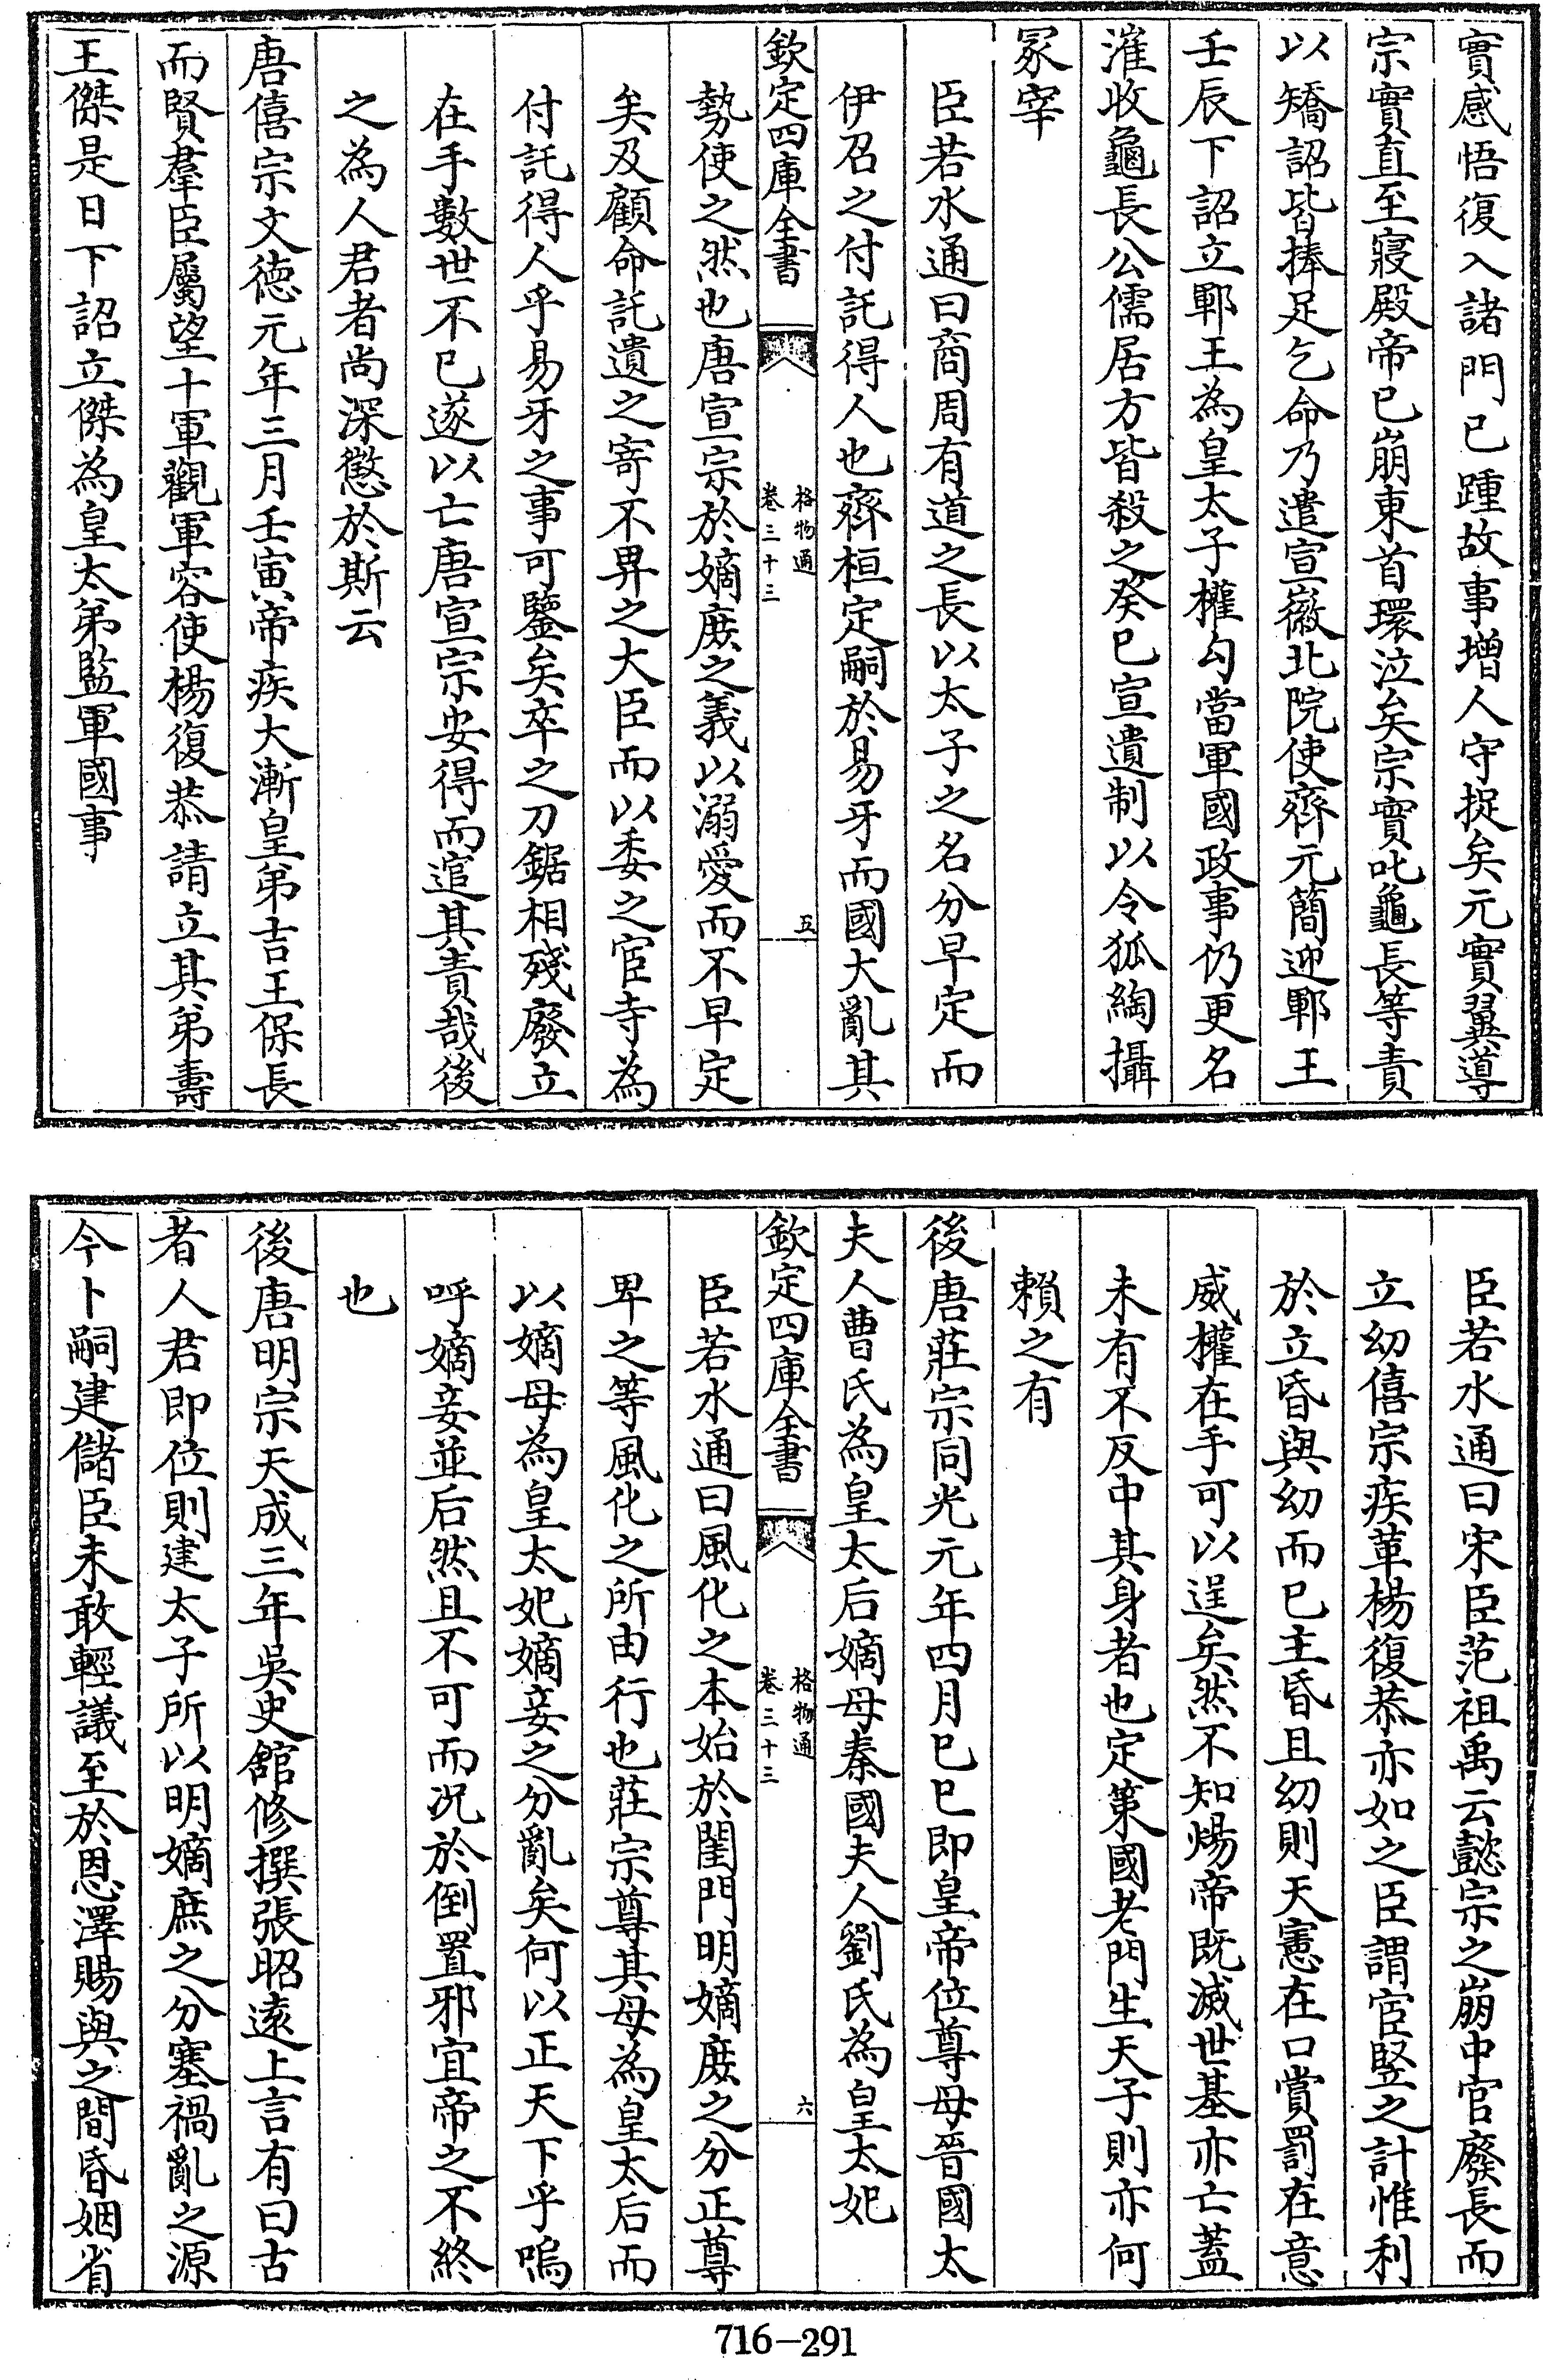 實感悟復入諸門已踵故事增人守捉矣元實翼導
宗實直至寢殿帝已崩東首環泣矣宗實叱龜長等責
以矯詔皆捧足乞命乃遣宣徽北院使齊元簡迎鄆王
壬辰下詔立鄆王為皇太子權勾當軍國政事仍更名
漼收龜長公儒居方皆殺之癸巳宣遺制以令狐綯攝
冡宰
臣若水通曰商周有道之長以太子之名分早定而
伊召之付託得人也齊桓定嗣於易牙而國大亂其
欽定四庫全書
格物通
卷三十三
五
勢使之然也唐宣宗於嫡庻之義以溺愛而不早定
矣及顧命託遺之寄不畀之大臣而以委之宦寺為
付託得人乎易牙之事可鑒矣卒之刀鋸相殘廢立
在手數世不已遂以亡唐宣宗安得而逭其責哉後
之為人君者尚深懲於斯云
唐僖宗文徳元年三月壬寅帝疾大漸皇弟吉王保長
而賢羣臣屬望十軍觀軍容使楊復恭請立其弟壽
王傑是日下詔立傑為皇太弟監軍國事
臣若水通曰宋臣范祖禹云懿宗之崩中官廢長而
立幼僖宗疾革楊復恭亦如之臣謂宦竪之計惟利
於立昏與幼而已主昏且幼則天憲在口賞罰在意
威權在手可以逞矣然不知煬帝既滅世基亦亡蓋
未有不反中其身者也定策國老門生天子則亦何
賴之有
後唐莊宗同光元年四月己巳即皇帝位尊母晉國太
夫人曹氏為皇太后嫡母秦國夫人劉氏為皇太妃
欽定四庫全書
格物通
卷三十三
六
臣若水通曰風化之本始於閨門明嫡庻之分正尊
卑之等風化之所由行也莊宗尊其母為皇太后而
以嫡母為皇太妃嫡妾之分亂矣何以正天下乎嗚
呼嫡妾並后然且不可而况於倒置邪宜帝之不終
也
後唐明宗天成三年吳史館修撰張昭遠上言有曰古
者人君即位則建太子所以明嫡庶之分塞禍亂之源
今卜嗣建儲臣未敢輕議至於恩澤賜與之間昏姻省
716-291